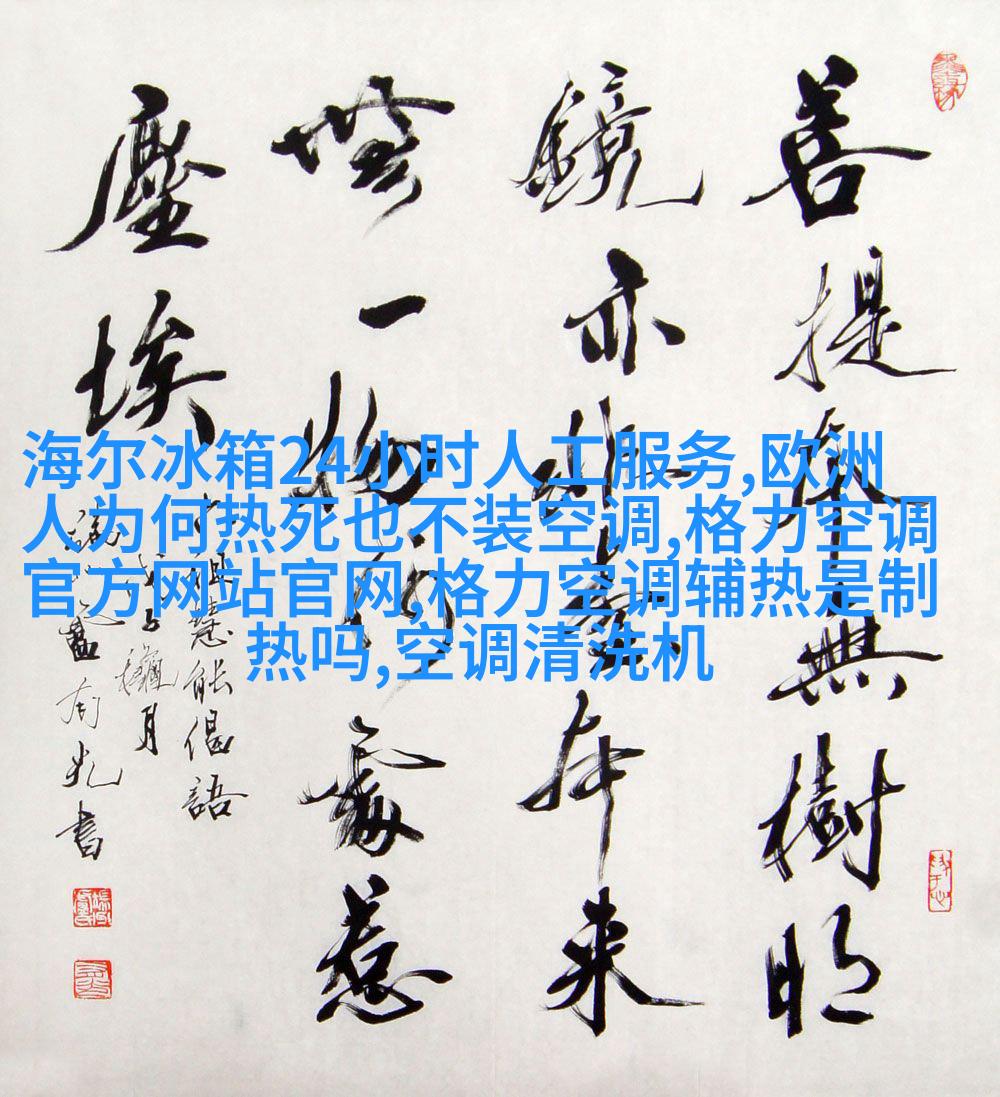 菩提本無樹明
鏡亦非臺本来
無一物何處惹
塵埃
六祖慧能偈語
月
書
海尔冰箱24小时人工服务,欧洲
人为何热死也不装空调,格力空调
官方网站官网,格力空调辅热是制
热吗,空调清洗机